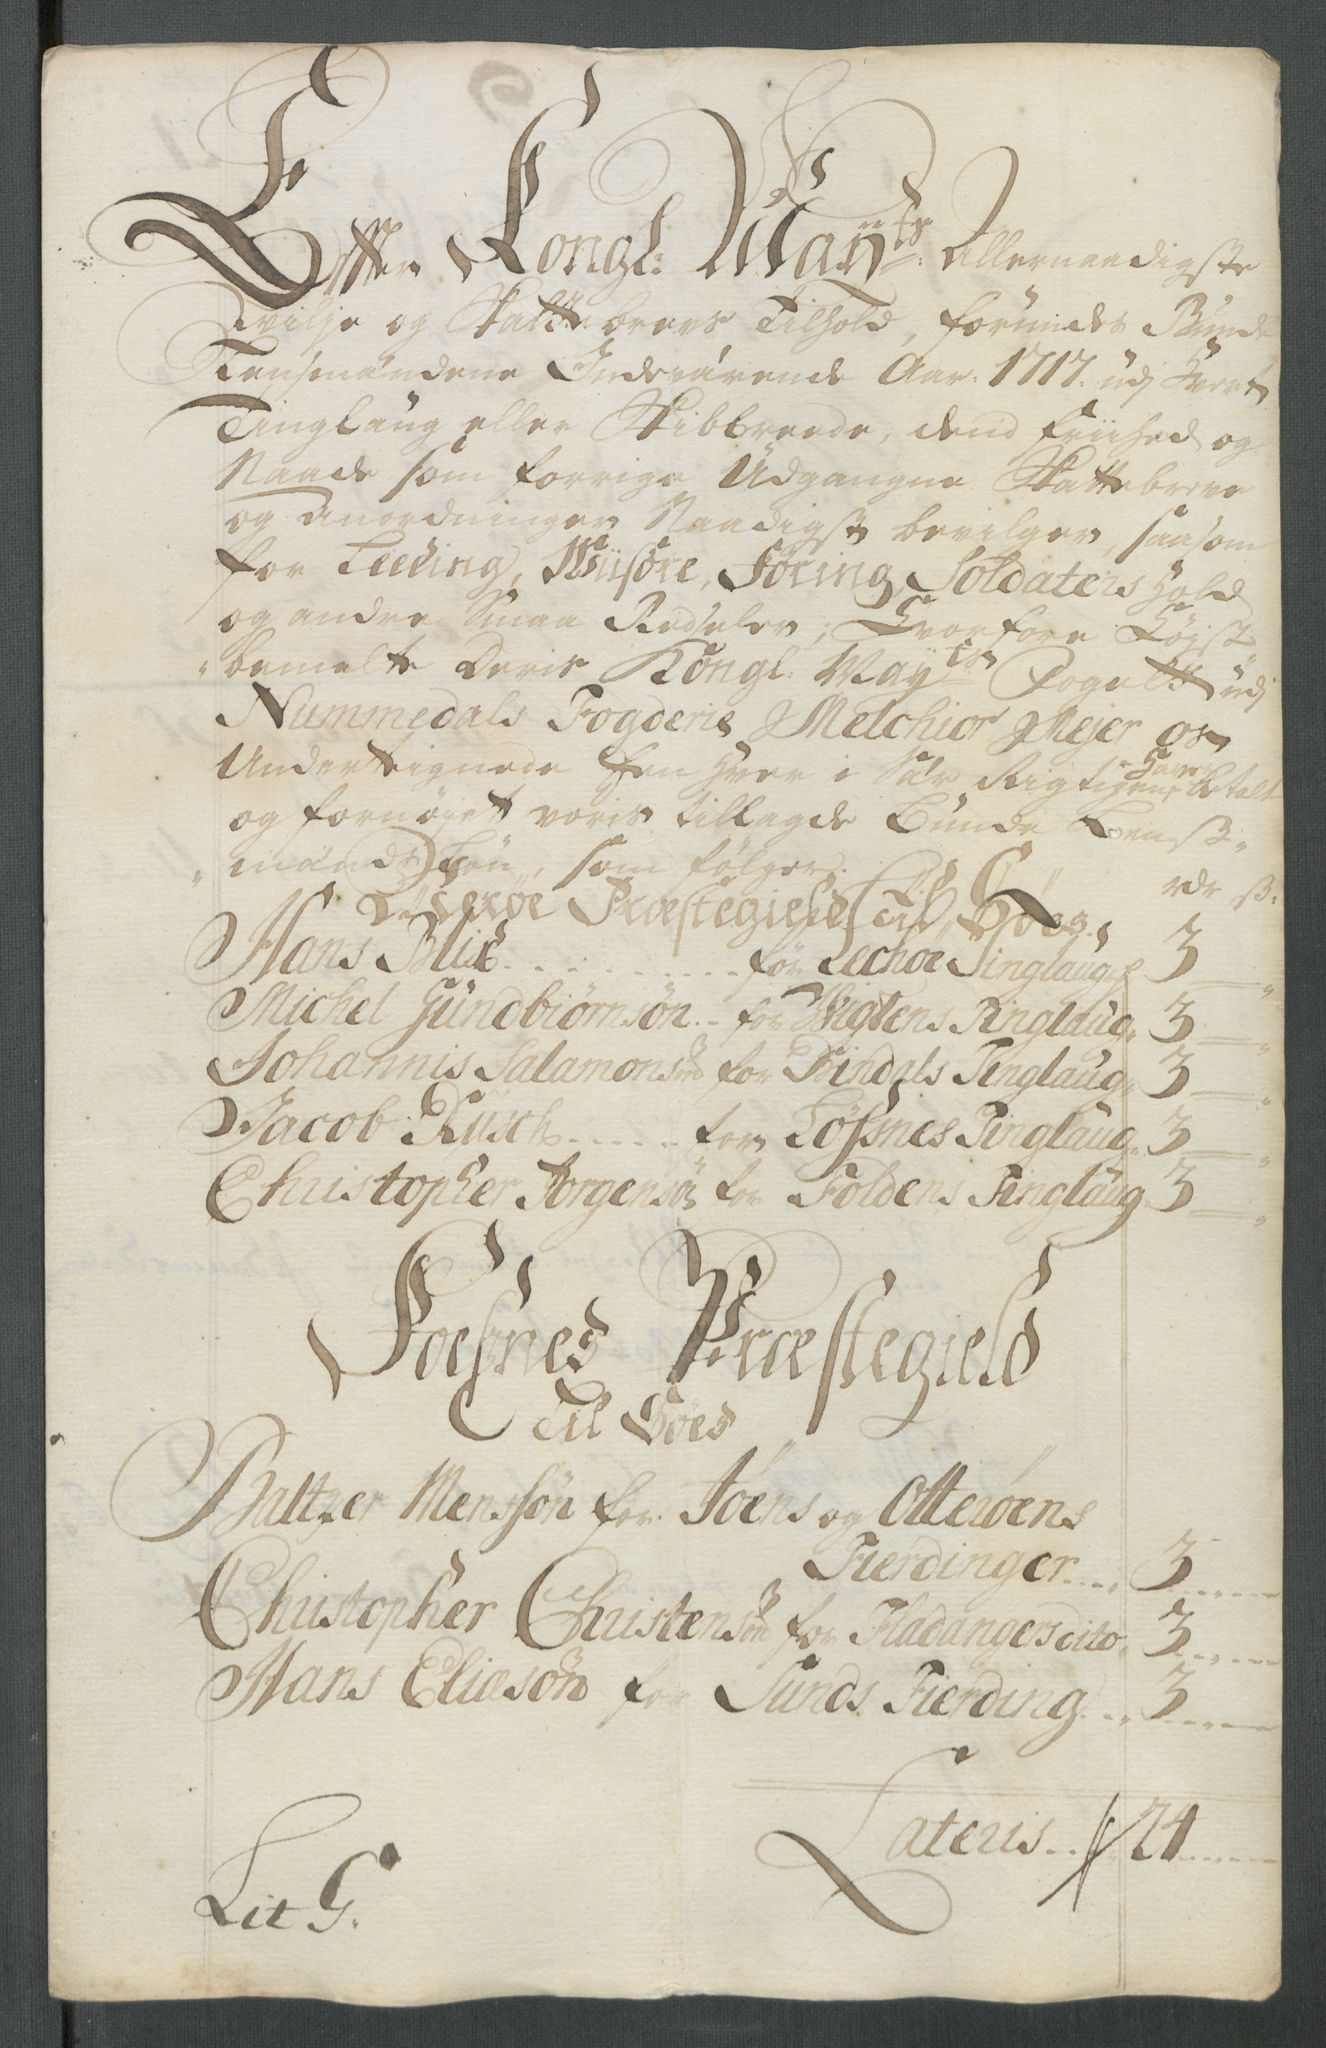 Effter Kongl: Mayts: Allernaadigste
Wilje og Skatte brevs Tilhold, forundes Bunde
Lensmændene Indeværende Aar 1717 udj hvert
Tinglaug eller Skibbreede, dend friihed og
Naade som forrige Udgangne Skattebreve
og Anordninger Naadigst bevilger, saasom
for Leeding, Wiisøre, Føring, Soldaters hold
og andre Smaa Redseler; Hvorfore Høyst
bemelte Deris Kongl. Mayts Foget udj
Nummedals Fogderie Melchior Mejer os
Undertegnede Een hver i Sær Rigtigen haver betalt
og fornøjet voris tillagde Bunde Lenß-
mands Løn, som følger.
rdr ß.
Præstegield Til Søes
Hans Blix . . . . for Lechøe Tinglaug 3
Michel Gundbiørnsøn . . for Wigtens Tinglaug 3
Johannis Salamonsøn for Rindals Tinglaug 3
Jacob Rysch . . . . . for Løfsnes Tinglaug 3
Christopher Jørgensøn for Foldens Tinglaug 3
Foesnes Præstegield
Til Søes
Baltzer Menssøn for Jøens og Otterøens
Fierdinger . . . 3
Christopher Christensøn for Fladangers dito 3
Hans Eliæsøn for Sunds Fierding . . . 3
Lateris . . . 24
Lit G.